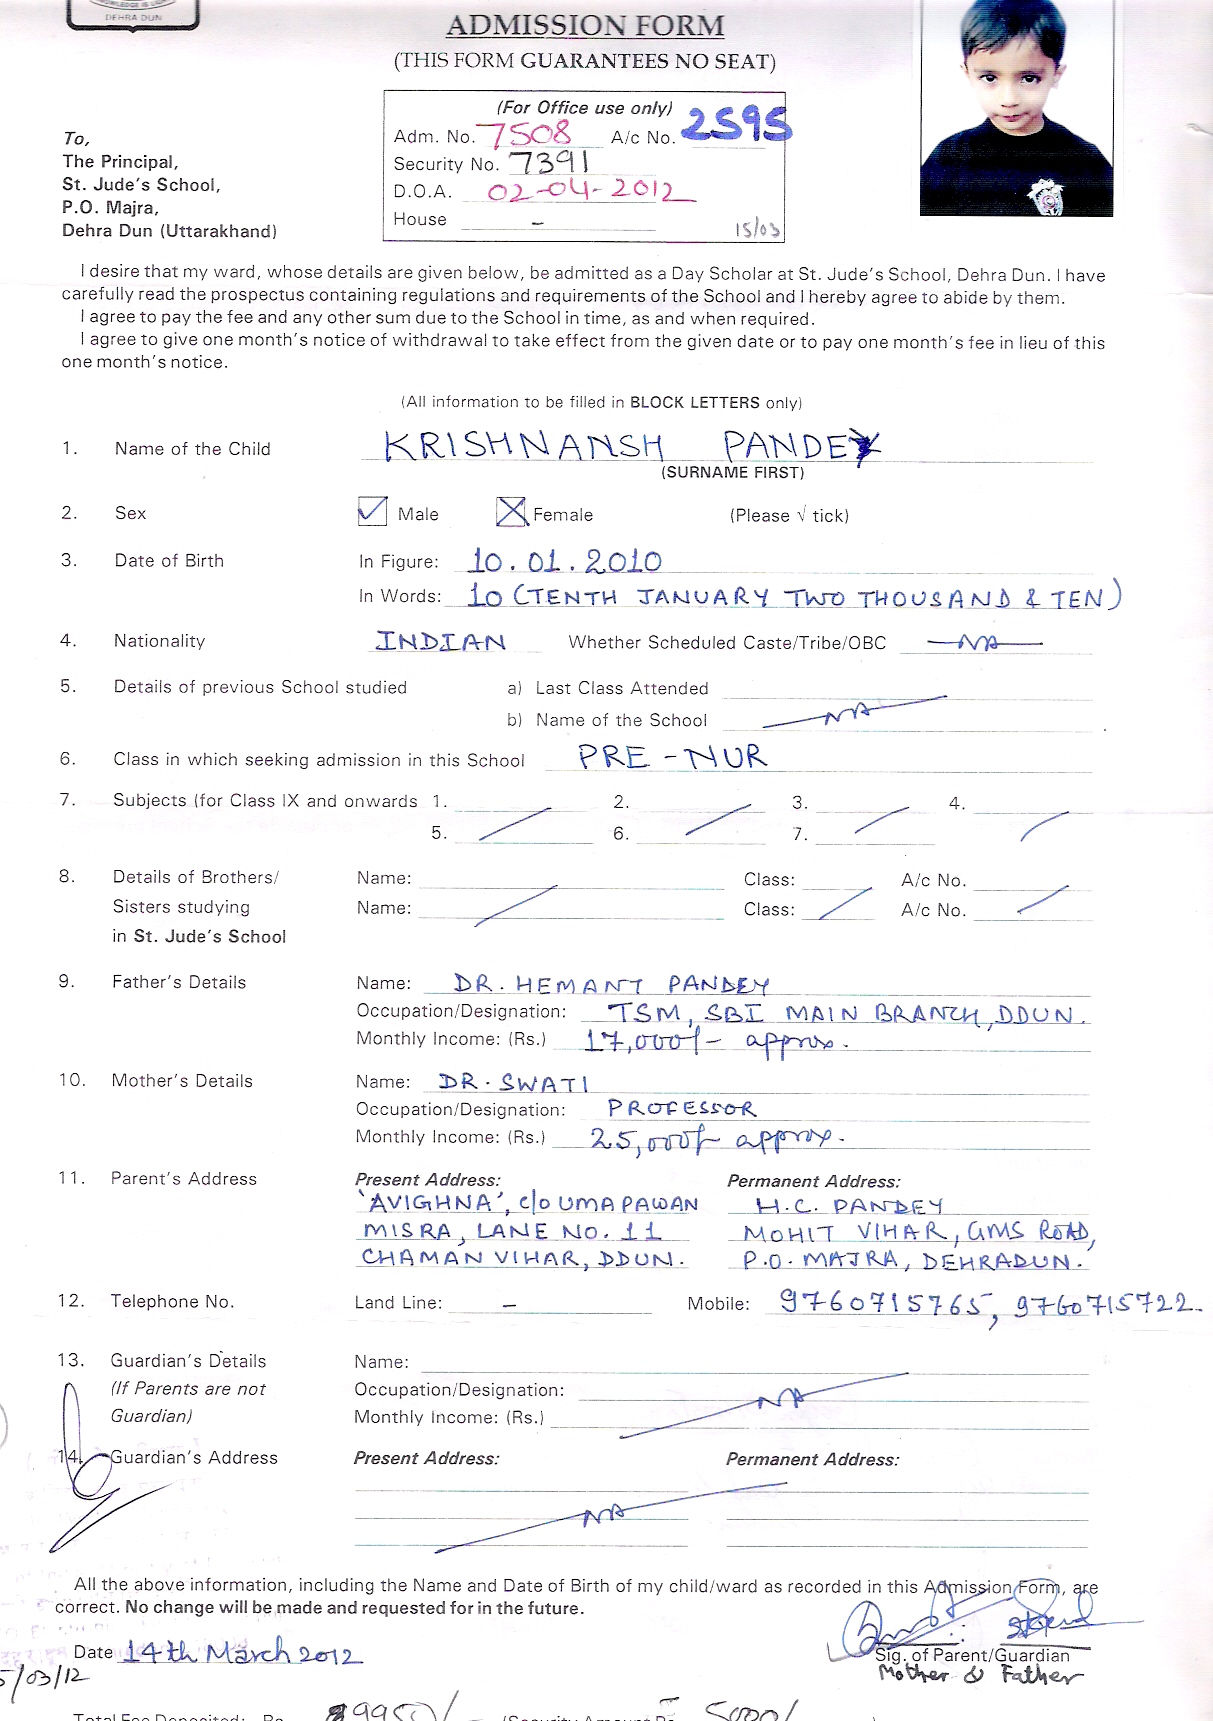 KNOWLEDGE IS LIGHT
DEHRA DUN
ADMISSION FORM
(THIS FORM GUARANTEES NO SEAT)
(For Office use only)
Adm. No. 7508 A/c No. 2595
Security No. 7391
D.O.A. 02-04-2012
House -
15/03
To,
The Principal,
St. Jude's School,
P.O. Majra,
Dehra Dun (Uttarakhand)
I desire that my ward, whose details are given below, be admitted as a Day Scholar at St. Jude's School, Dehra Dun. I have
carefully read the prospectus containing regulations and requirements of the School and I hereby agree to abide by them.
I agree to pay the fee and any other sum due to the School in time, as and when required.
I agree to give one month's notice of withdrawal to take effect from the given date or to pay one month's fee in lieu of this
one month's notice.
(All information to be filled in BLOCK LETTERS only)
1. Name of the Child KRISHNANSH PANDEY
(SURNAME FIRST)
2. Sex ☑ Male ☒ Female (Please √ tick)
3. Date of Birth In Figure: 10.01.2010
In Words: 10 (TENTH JANUARY TWO THOUSAND & TEN)
4. Nationality INDIAN Whether Scheduled Caste/Tribe/OBC NA
5. Details of previous School studied a) Last Class Attended
b) Name of the School NA
6. Class in which seeking admission in this School PRE-NUR
7. Subjects (for Class IX and onwards 1. 2. 3. 4.
5. 6. 7.
8. Details of Brothers/ Name: Class: A/c No.
Sisters studying Name: Class: A/c No.
in St. Jude's School
9. Father's Details Name: DR. HEMANT PANDEY
Occupation/Designation: TSM, SBI MAIN BRANCH, DDUN.
Monthly Income: (Rs.) 17,000/- approx.
10. Mother's Details Name: DR. SWATI
Occupation/Designation: PROFESSOR
Monthly Income: (Rs.) 25,000/- approx.
11. Parent's Address Present Address: Permanent Address:
'AVIGHNA', c/o UMA PAWAN H.C. PANDEY
MISRA, LANE NO. 11 MOHIT VIHAR, GMS ROAD,
CHAMAN VIHAR, DDUN. P.O. MAJRA, DEHRADUN.
12. Telephone No. Land Line: - Mobile: 9760715765, 9760715722.
13. Guardian's Details Name:
(If Parents are not Occupation/Designation: NA
Guardian) Monthly Income: (Rs.)
14. Guardian's Address Present Address: Permanent Address:
NA
All the above information, including the Name and Date of Birth of my child/ward as recorded in this Admission Form, are
correct. No change will be made and requested for in the future.
Date 14th March 2012
Sig. of Parent/Guardian
5/03/12
Mother & Father
Total Fee Deposited: Rs. 9950/- (Security Amount Rs. 5000/ )